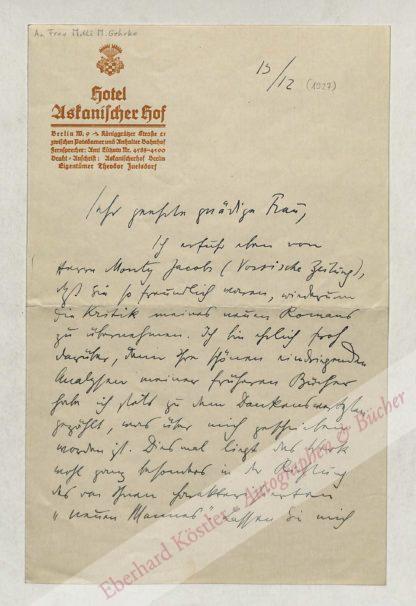 An Frau M. M. Gehrke
13/12 (1927)
Hotel
Askanischer Hof
Berlin W. 9 Königgrätzer Straße 21
zwischen Potsdamer und Anhalter Bahnhof
Fernsprecher: Amt Lützow Nr. 4198-4200
Draht-Anschrift: Askanischerhof Berlin
Eigentümer Theodor
Sehr geehrte gnädige Frau,
Ich erfuhr eben von
Herrn Monty Jacobs (Vossische Zeitung),
daß Sie so freundlich waren, wiederum
die Kritik meines neuen Romans
zu übernehmen. Ich bin ehrlich froh
darüber, denn Ihre schönen eindringenden
Analysen meiner früheren Bücher
habe ich stets zu dem Dankenswertesten
gezählt, was über mich geschrieben
worden ist. Diesmal liegt das Werk
wohl ganz besonders in der Richtung
des von Ihnen charakterisierten
„neuen Mannes“. Lassen Sie mich
Eberhard Köstler Autographen & Bücher